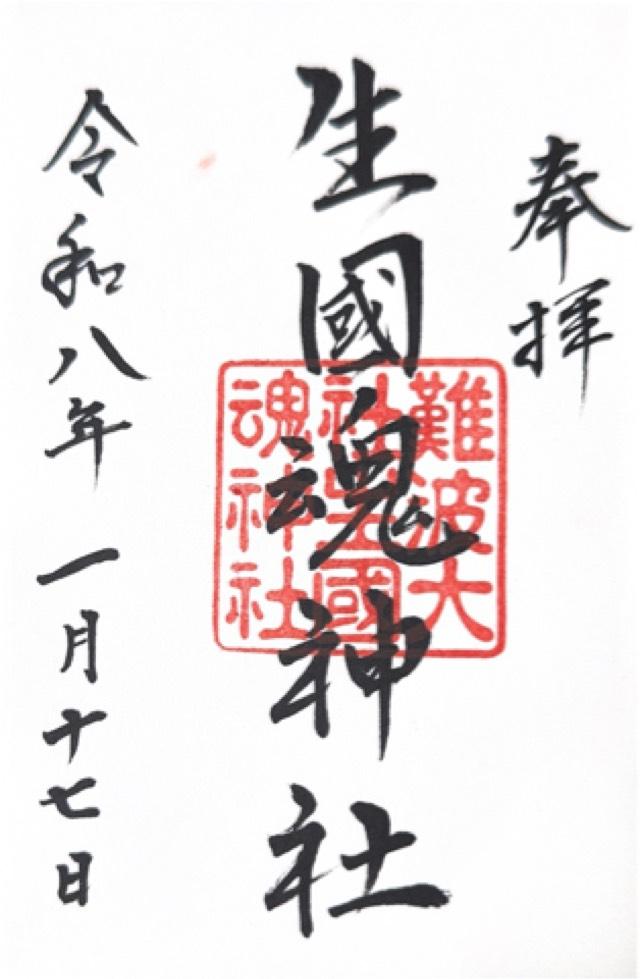 奉拝
生國魂神社
難波大
社生國
魂神社
令和八年 一月十七日